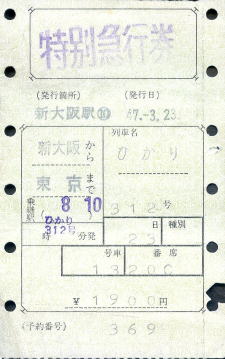 特別急行券
(発行箇所) (発行日)
新大阪駅⑩ 47.-3.23
列車名
新大阪から ひかり
東京まで
乗継駅 8 10 312号
ひかり
312号
時 分発 日 種別
23
号車 番 席
13 20C
￥1900円
(予約番号) 369